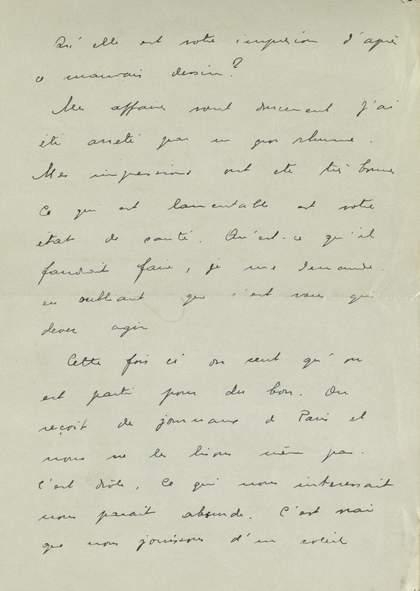 Qu'elle est votre impression d'après
ce mauvais dessin?
Mes affaires vont doucement j'ai
été arreté par un gros rhume.
Mes impressions ont été très bonnes
Ce qui est lamentable est votre
état de santé. Qu'est-ce qu'il
faudrait faire, je me demande
en oubliant que c'est vous qui
devez agir
Cette fois ci on sent qu'on
est parti pour du bon. On
reçoit des journaux de Paris et
nous ne les lisons même pas.
C'est drôle. Ce qui nous interessait
nous parait absurde. C'est vrai
que nous jouissons d'un soleil